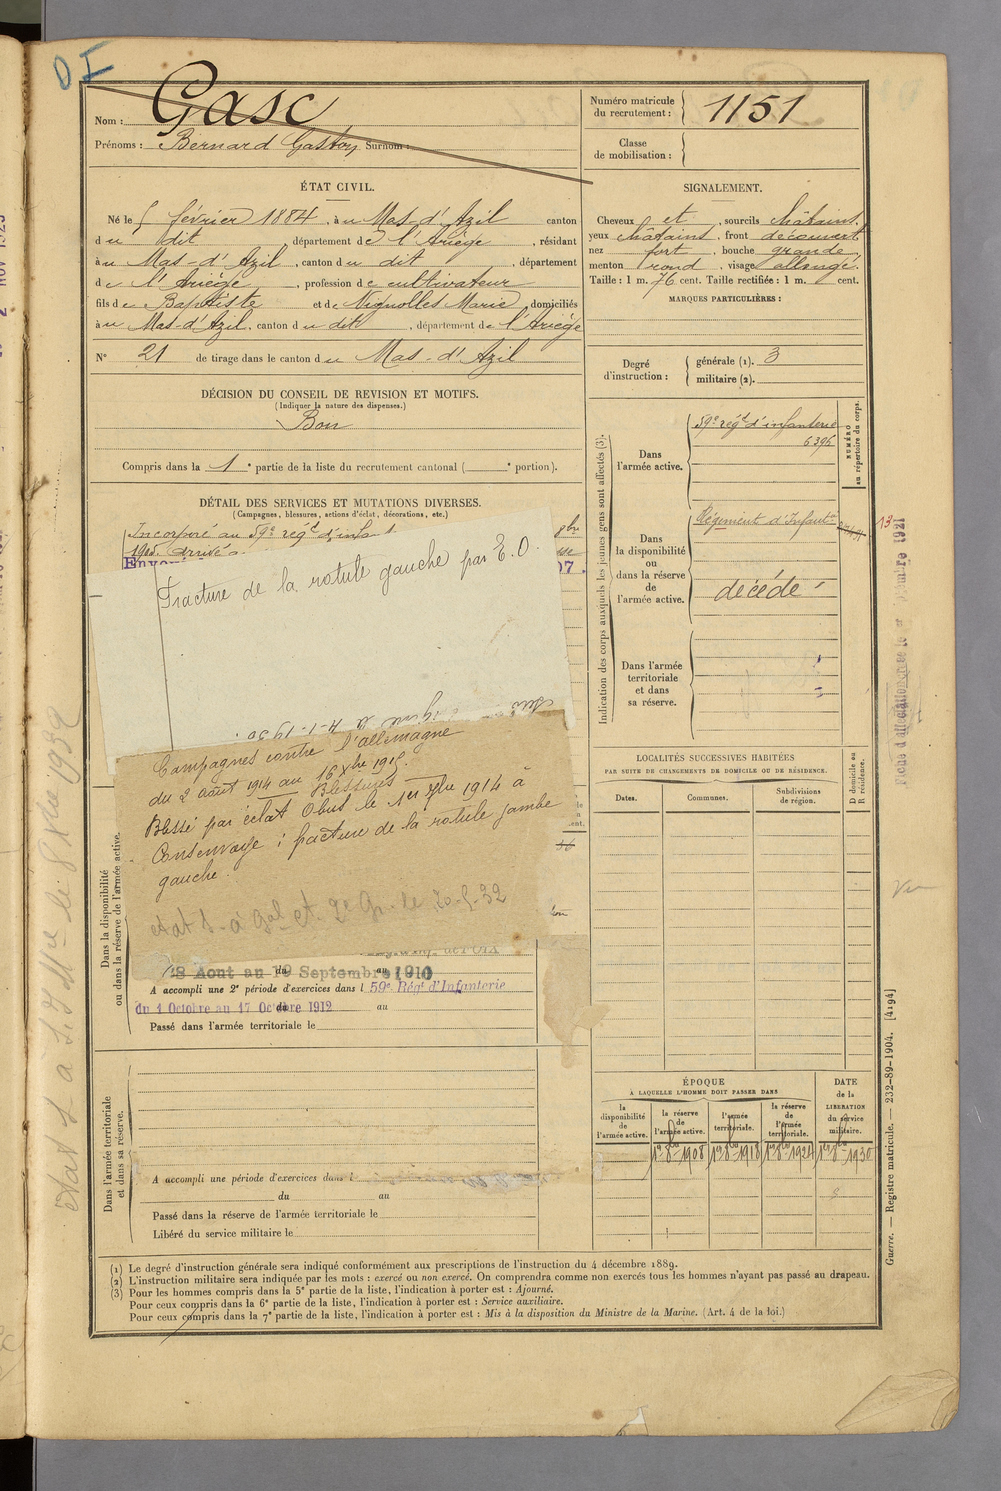 DI
Nom : Gasc
Prénoms : Bernard Gaston Surnom :
Numéro matricule du recrutement : 1151
Classe de mobilisation :
ÉTAT CIVIL.
Né le 5 février 1884, à u Mas-d'Azil canton
d u dit département de l'Ariège, résidant
à u Mas-d'Azil, canton d u dit, département
de l'Ariège, profession de cultivateur
fils de Baptiste et de Vignolles Marie, domiciliés
à u Mas-d'Azil, canton d u dit, département de l'Ariège
N° 21 de tirage dans le canton d u Mas-d'Azil
SIGNALEMENT.
Cheveux et, sourcils châtains.
yeux châtains, front découvert
nez fort, bouche grande,
menton rond, visage allongé.
Taille : 1 m. 76 cent. Taille rectifiée : 1 m. cent.
MARQUES PARTICULIÈRES :
Degré d'instruction :
générale (1). 3
militaire (2).
DÉCISION DU CONSEIL DE REVISION ET MOTIFS.
(Indiquer la nature des dispenses.)
Bon
Compris dans la 1e partie de la liste du recrutement cantonal ( e portion).
DÉTAIL DES SERVICES ET MUTATIONS DIVERSES.
(Campagnes, blessures, actions d'éclat, décorations, etc.)
Incorporé au 59e régt d'infan
1905. arrivé a
Fracture de la rotule gauche par E.O.
4-1-1930.
Campagnes contre l'allemagne
du 2 août 1914 au 16 Xbre 1915.
Blessures
Blessé par éclat Obus le 1er 7bre 1914 à
Consenvoye ; fracture de la rotule jambe
gauche.
état S. à Gal et. 2e Gr. le 20-5-32
18 Aout au du 19 Septembre au 1910
A accompli une 2e période d'exercices dans l 59e Régt d'Infanterie
du 1 Octobre au 17 Octobre 1912 du au
Passé dans l'armée territoriale le
Dans la disponibilité
ou dans la réserve de l'armée active.
Dans l'armée territoriale
et dans sa réserve.
A accompli une période d'exercices dans l
du au
Passé dans la réserve de l'armée territoriale le
Libéré du service militaire le
Indication des corps auxquels les jeunes gens sont affectés (3).
Dans l'armée active.
59e régt d'infanterie
6396
NUMÉRO
au répertoire du corps.
Dans la disponibilité ou dans la réserve de l'armée active.
Régiment d'Infant
décédé
Dans l'armée territoriale et dans sa réserve.
LOCALITÉS SUCCESSIVES HABITÉES
PAR SUITE DE CHANGEMENTS DE DOMICILE OU DE RÉSIDENCE.
Dates.
Communes.
Subdivisions de région.
D domicile ou
R résidence.
ÉPOQUE
À LAQUELLE L'HOMME DOIT PASSER DANS
la disponibilité de l'armée active.
la réserve de l'armée active.
l'armée territoriale.
la réserve de l'armée territoriale.
DATE de la LIBÉRATION du service militaire.
1er 8bre 1908
1er 8bre 1918
1er 8bre 1924
1er 8bre 1930
(1) Le degré d'instruction générale sera indiqué conformément aux prescriptions de l'instruction du 4 décembre 1889.
(2) L'instruction militaire sera indiquée par les mots : exercé ou non exercé. On comprendra comme non exercés tous les hommes n'ayant pas passé au drapeau.
(3) Pour les hommes compris dans la 5e partie de la liste, l'indication à porter est : Ajourné.
Pour ceux compris dans la 6e partie de la liste, l'indication à porter est : Service auxiliaire.
Pour ceux compris dans la 7e partie de la liste, l'indication à porter est : Mis à la disposition du Ministre de la Marine. (Art. 4 de la loi.)
Guerre. — Registre matricule. — 232-89-1904. [4194]